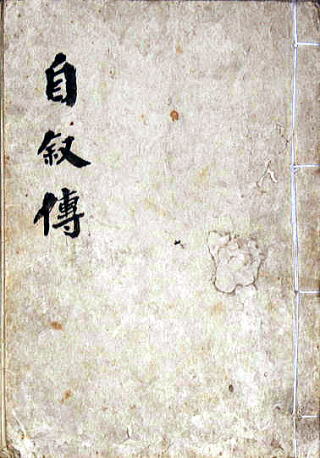 自叙傳